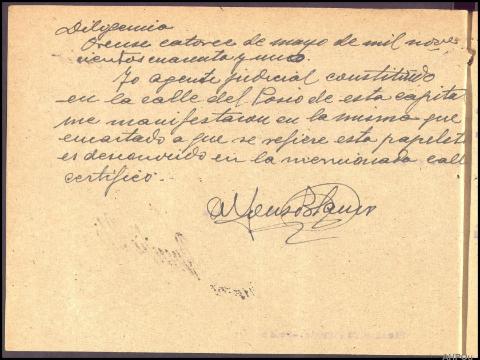 Diligencia
Orense catorce de mayo de mil nove
cientos cuarenta y uno.
Yo agente judicial constituido
en la calle del Posio de esta capita
me manifestaron en la misma que
encartado a que se refiere esta papelet
es desconocido en la mencionada call
certifico.-
Alfonso Blanco
AHPOu